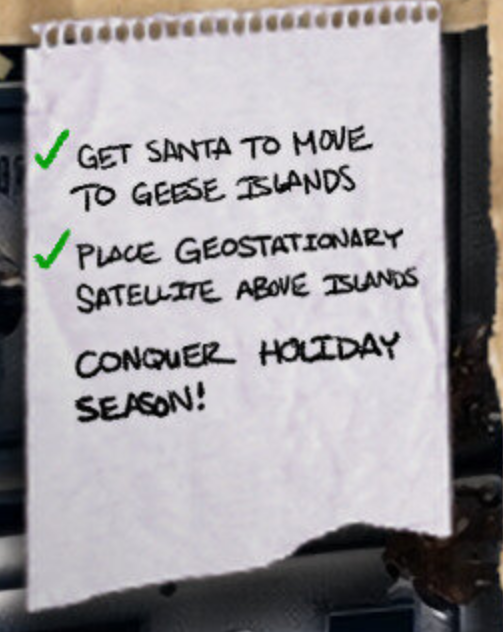 GET SANTA TO MOVE
TO GEESE ISLANDS
PLACE GEOSTATIONARY
SATELLITE ABOVE ISLANDS
CONQUER HOLIDAY
SEASON!